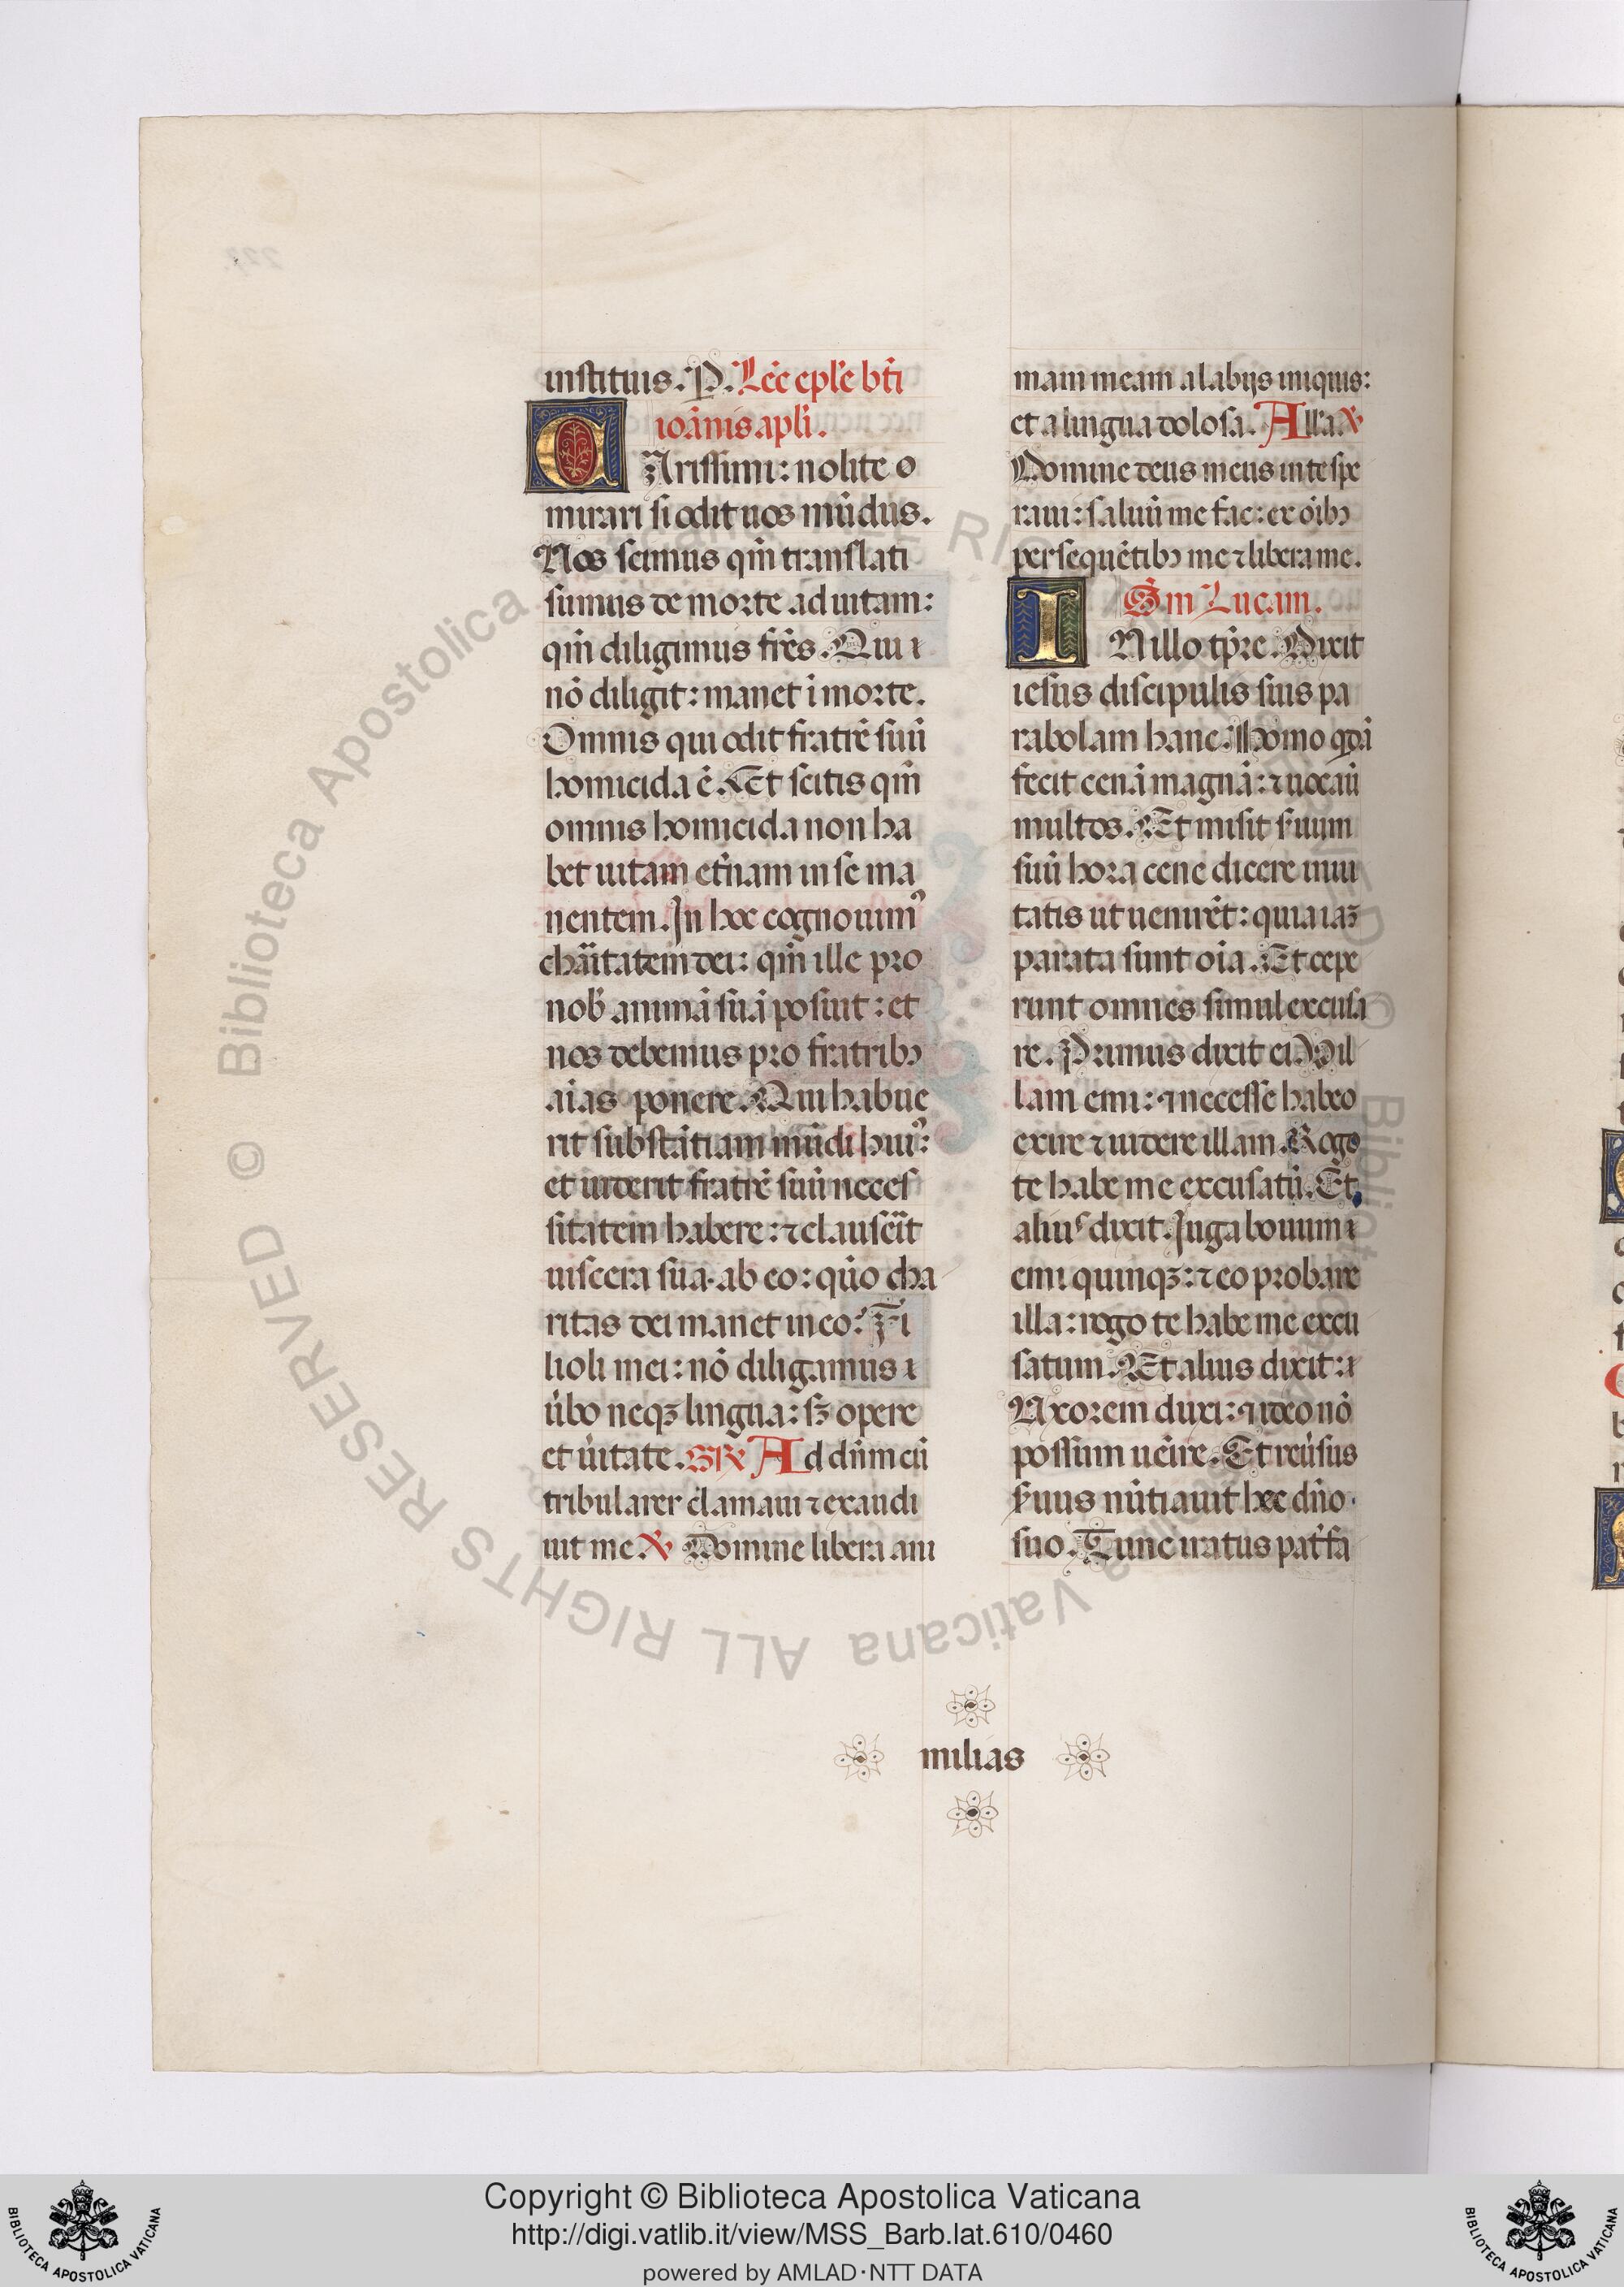 instituis. P. Lec̄ ep̄le b̄ti
ioānis apl̄i.
CArissimi: nolite
mirari si odit uos mūdus.
Nos scimus qm̄ translati
sumus de morte ad uitam:
qm̄ diligimus fr̄es. Qui
nō diligit: manet ī morte.
Omnis qui odit fratrē suū
homicida ē. Et scitis qm̄
omnis homicida non ha
bet uitam et̄nam in se ma
nentem. In hoc cognouimꝰ
char̄itatem dei: qm̄ ille pro
nob̄ animā suā posuit: et
nos debemus pro fratribꝫ
aīas ponere. Qui habue
rit substātiam mūdi huiꝰ:
et uiderit fratrē suū neces
sitatem habere: ⁊ clauser̄it
uiscera sua ab eo: quō cha
ritas dei manet in eo? Fi
lioli mei: nō diligamus
ūbo neqꝫ lingua: sꝫ opere
et ūitate. GR̄ Ad dn̄m cū
tribularer clamaui ⁊ exaudi
uit me. ℣ Domine libera ani
mam meam a labijs iniquis:
et a lingua dolosa. All'a. ℣
Domine deus meus in te spe
raui: saluū me fac: ex oībꝫ
persequētibꝫ me ⁊ libera me.
Sm̄ Lucam.
IN illo tp̄re. Dixit
iesus discipulis suis pa
rabolam hanc. Homo qdā
fecit cenā magnā: ⁊ uocaū
multos. Et misit s̄uum
suū hora cene dicere inui
tatis ut uenirēt: quia iaꝫ
parata sunt oīa. Et cepe
runt omnes simul excusa
re. Primus dixit ei. Uil
lam emi: ⁊ necesse habeo
exire ⁊ uidere illam. Rogo
te habe me excusatū. Et
alius dixit. Juga bouum
emi quinqꝫ: ⁊ eo probare
illa: rogo te habe me excu
satum. Et alius dixit:
Uxorem duxi: ⁊ ideo nō
possum uēire. Et reūsus
s̄uus nūtiauit hec dn̄o
suo. Tunc iratus pat̄fa
milias
Copyright © Biblioteca Apostolica Vaticana
http://digi.vatlib.it/view/MSS_Barb.lat.610/0460
powered by AMLAD·NTT DATA
BIBLIOTECA APOSTOLICA VATICANA
BIBLIOTECA APOSTOLICA VATICANA
© Biblioteca Apostolica Vaticana ALL RIGHTS RESERVED